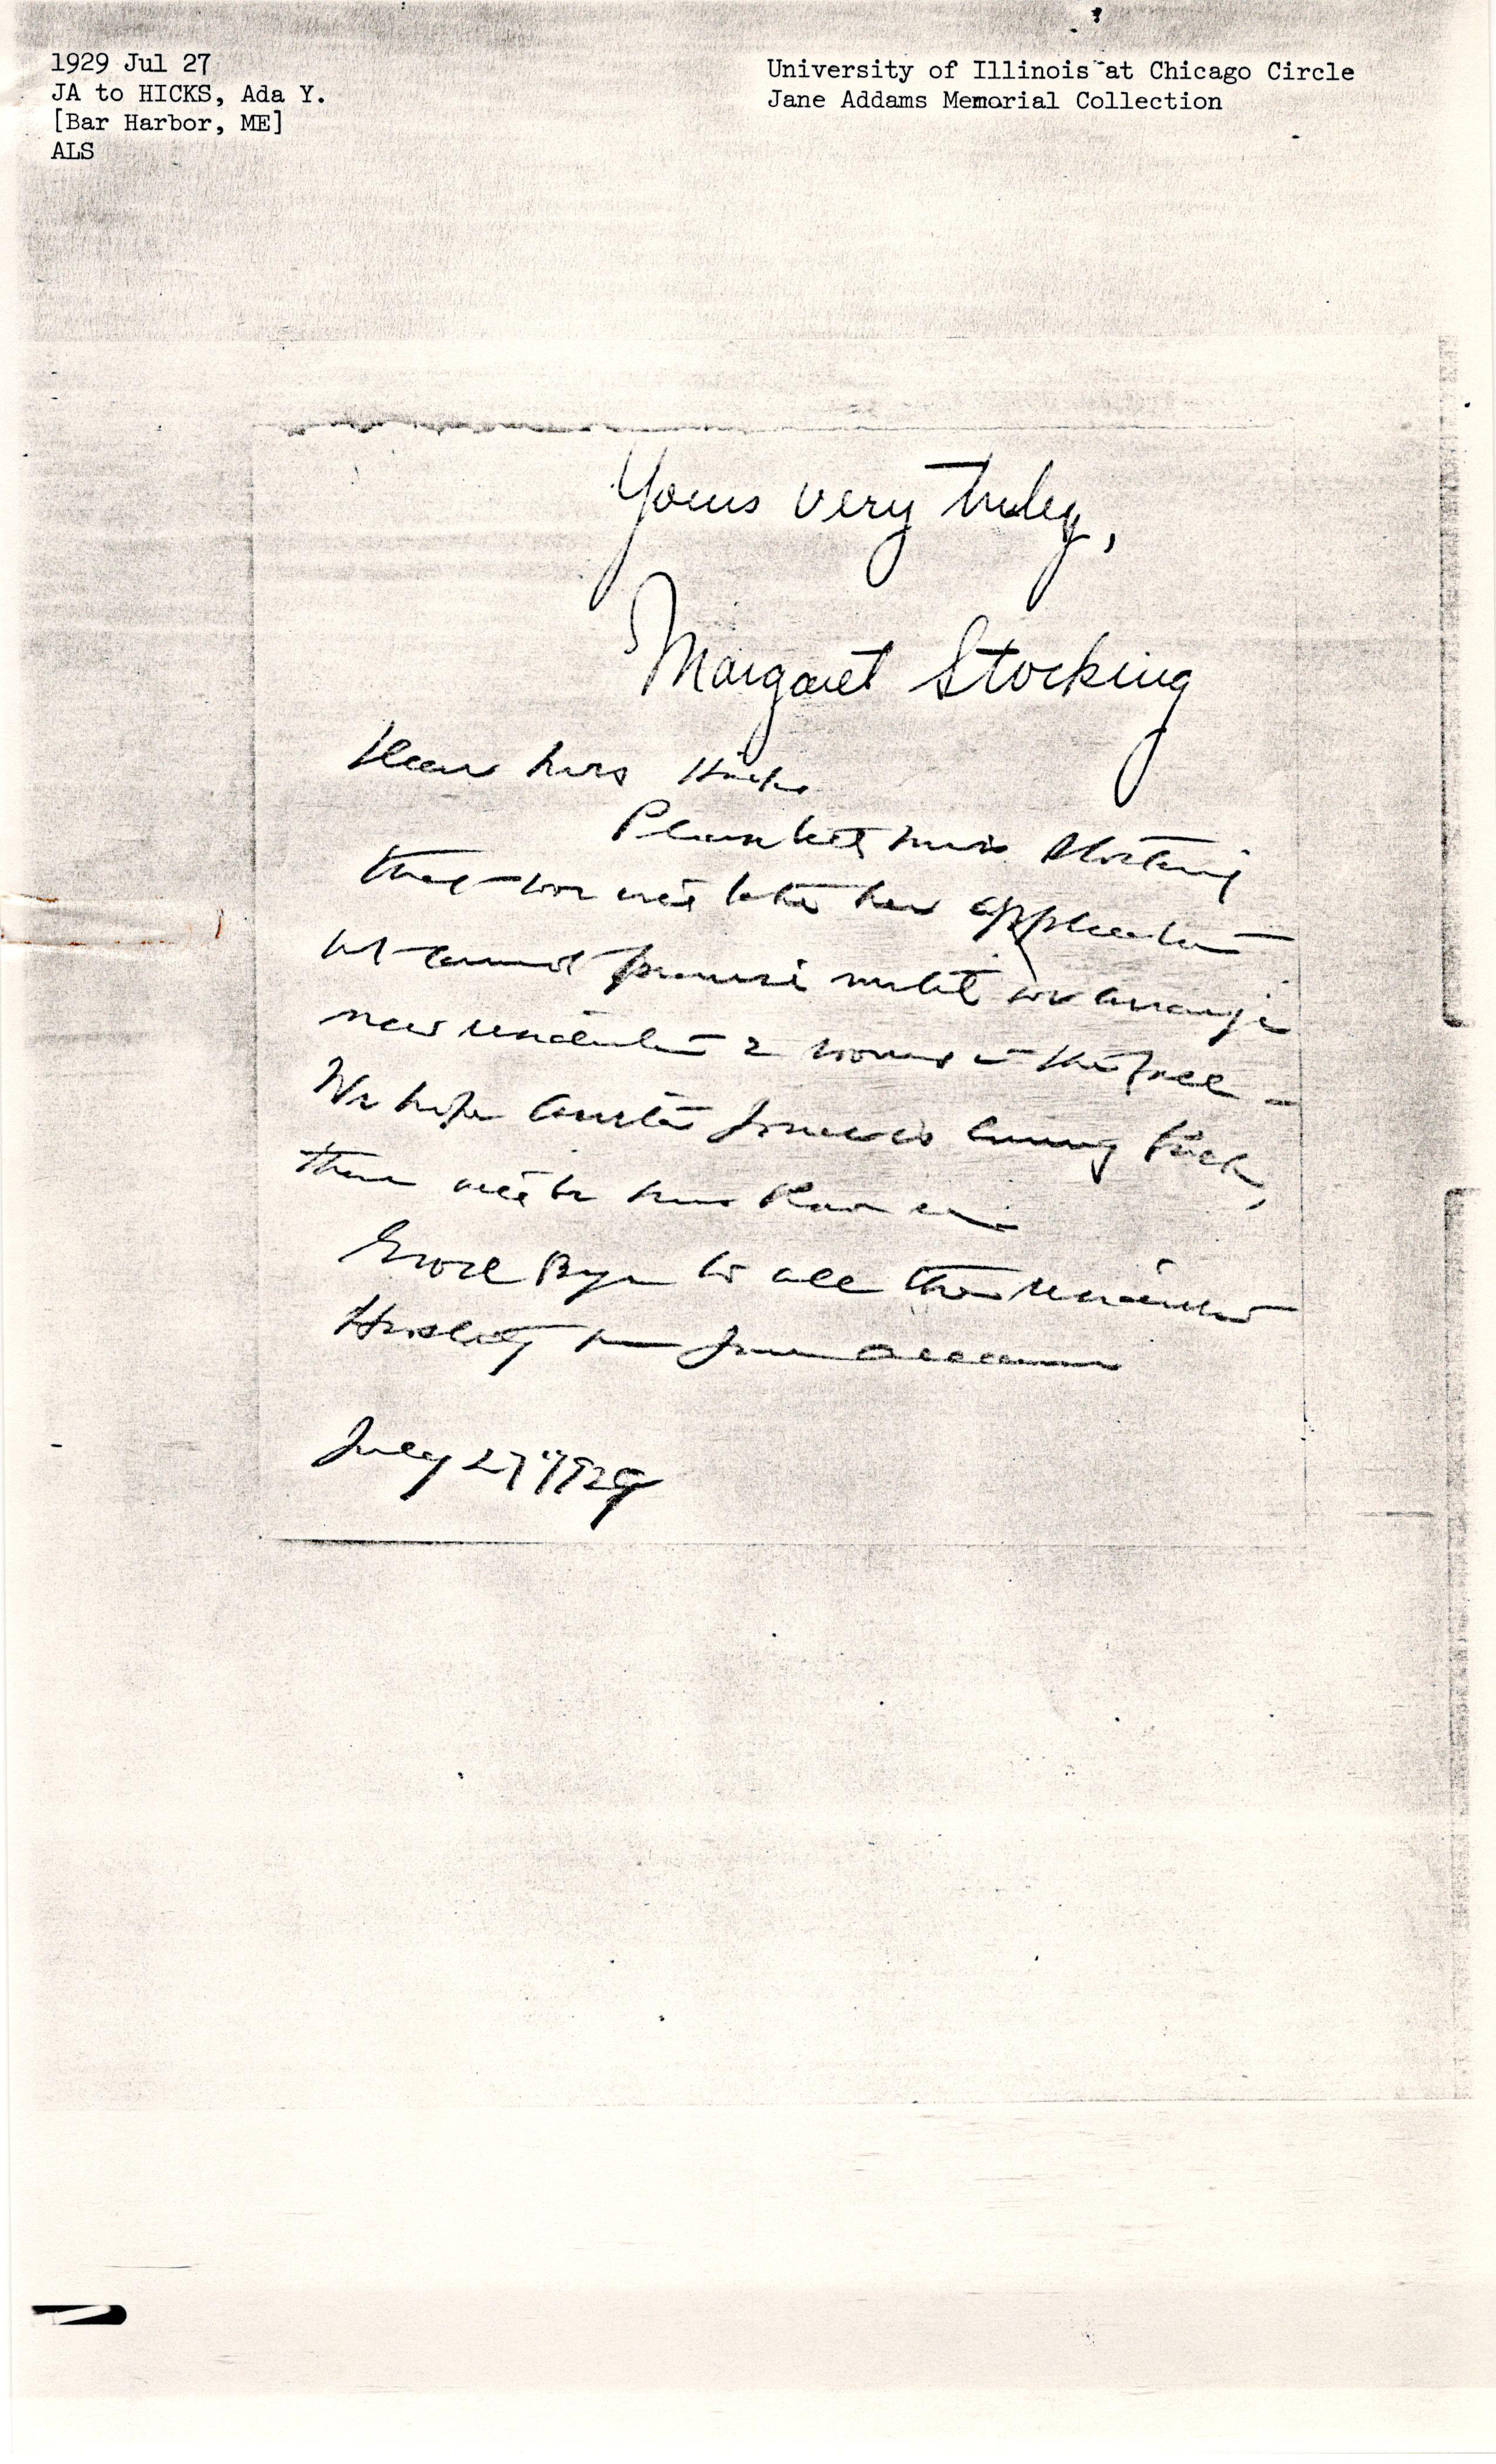 1929 Jul 27
JA to HICKS, Ada Y.
[Bar Harbor, ME]
ALS
University of Illinois at Chicago Circle
Jane Addams Memorial Collection
Yours very truly,
Margaret Stocking
Dear Mrs Hicks
Please tell Miss Stocking
that we will take her application
but cannot promise until we arrange
new residents & rooms in the fall –
We hope is coming back,
there will be
Good Bye to all the residents
Hastily Jane Addams
July 27" 1929